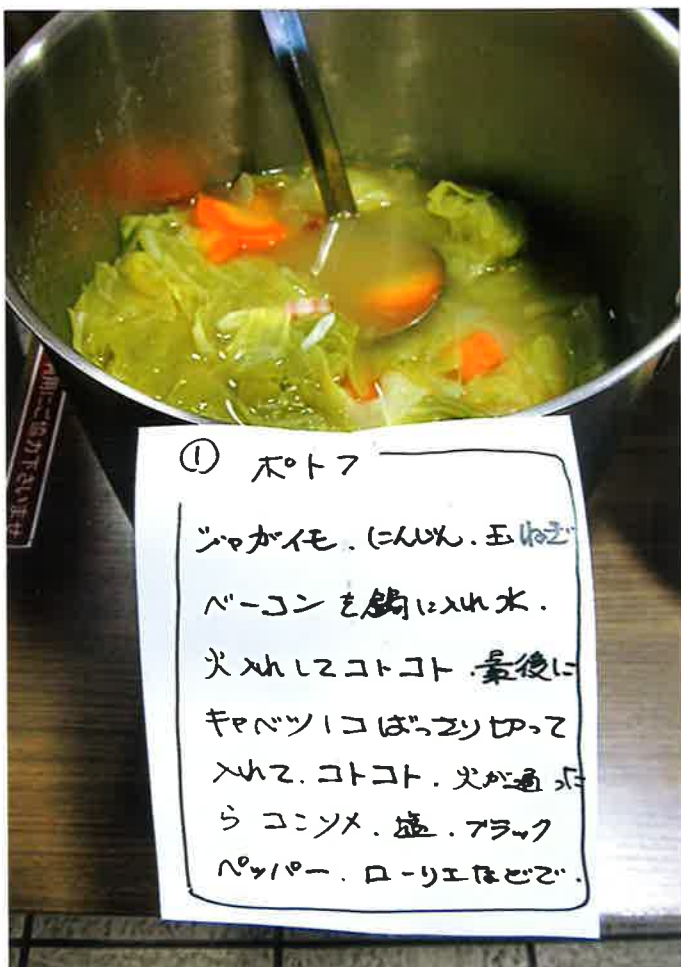 ① ポトフ
ジャガイモ、にんじん、玉ねぎ
ベーコンを鍋に入れ水、
火入れしてコトコト、最後に
キャベツ1コばっさり切って
入れて、コトコト、火が通った
ら コンソメ、塩、ブラック
ペッパー、ローリエなどで、
協力下さいませ